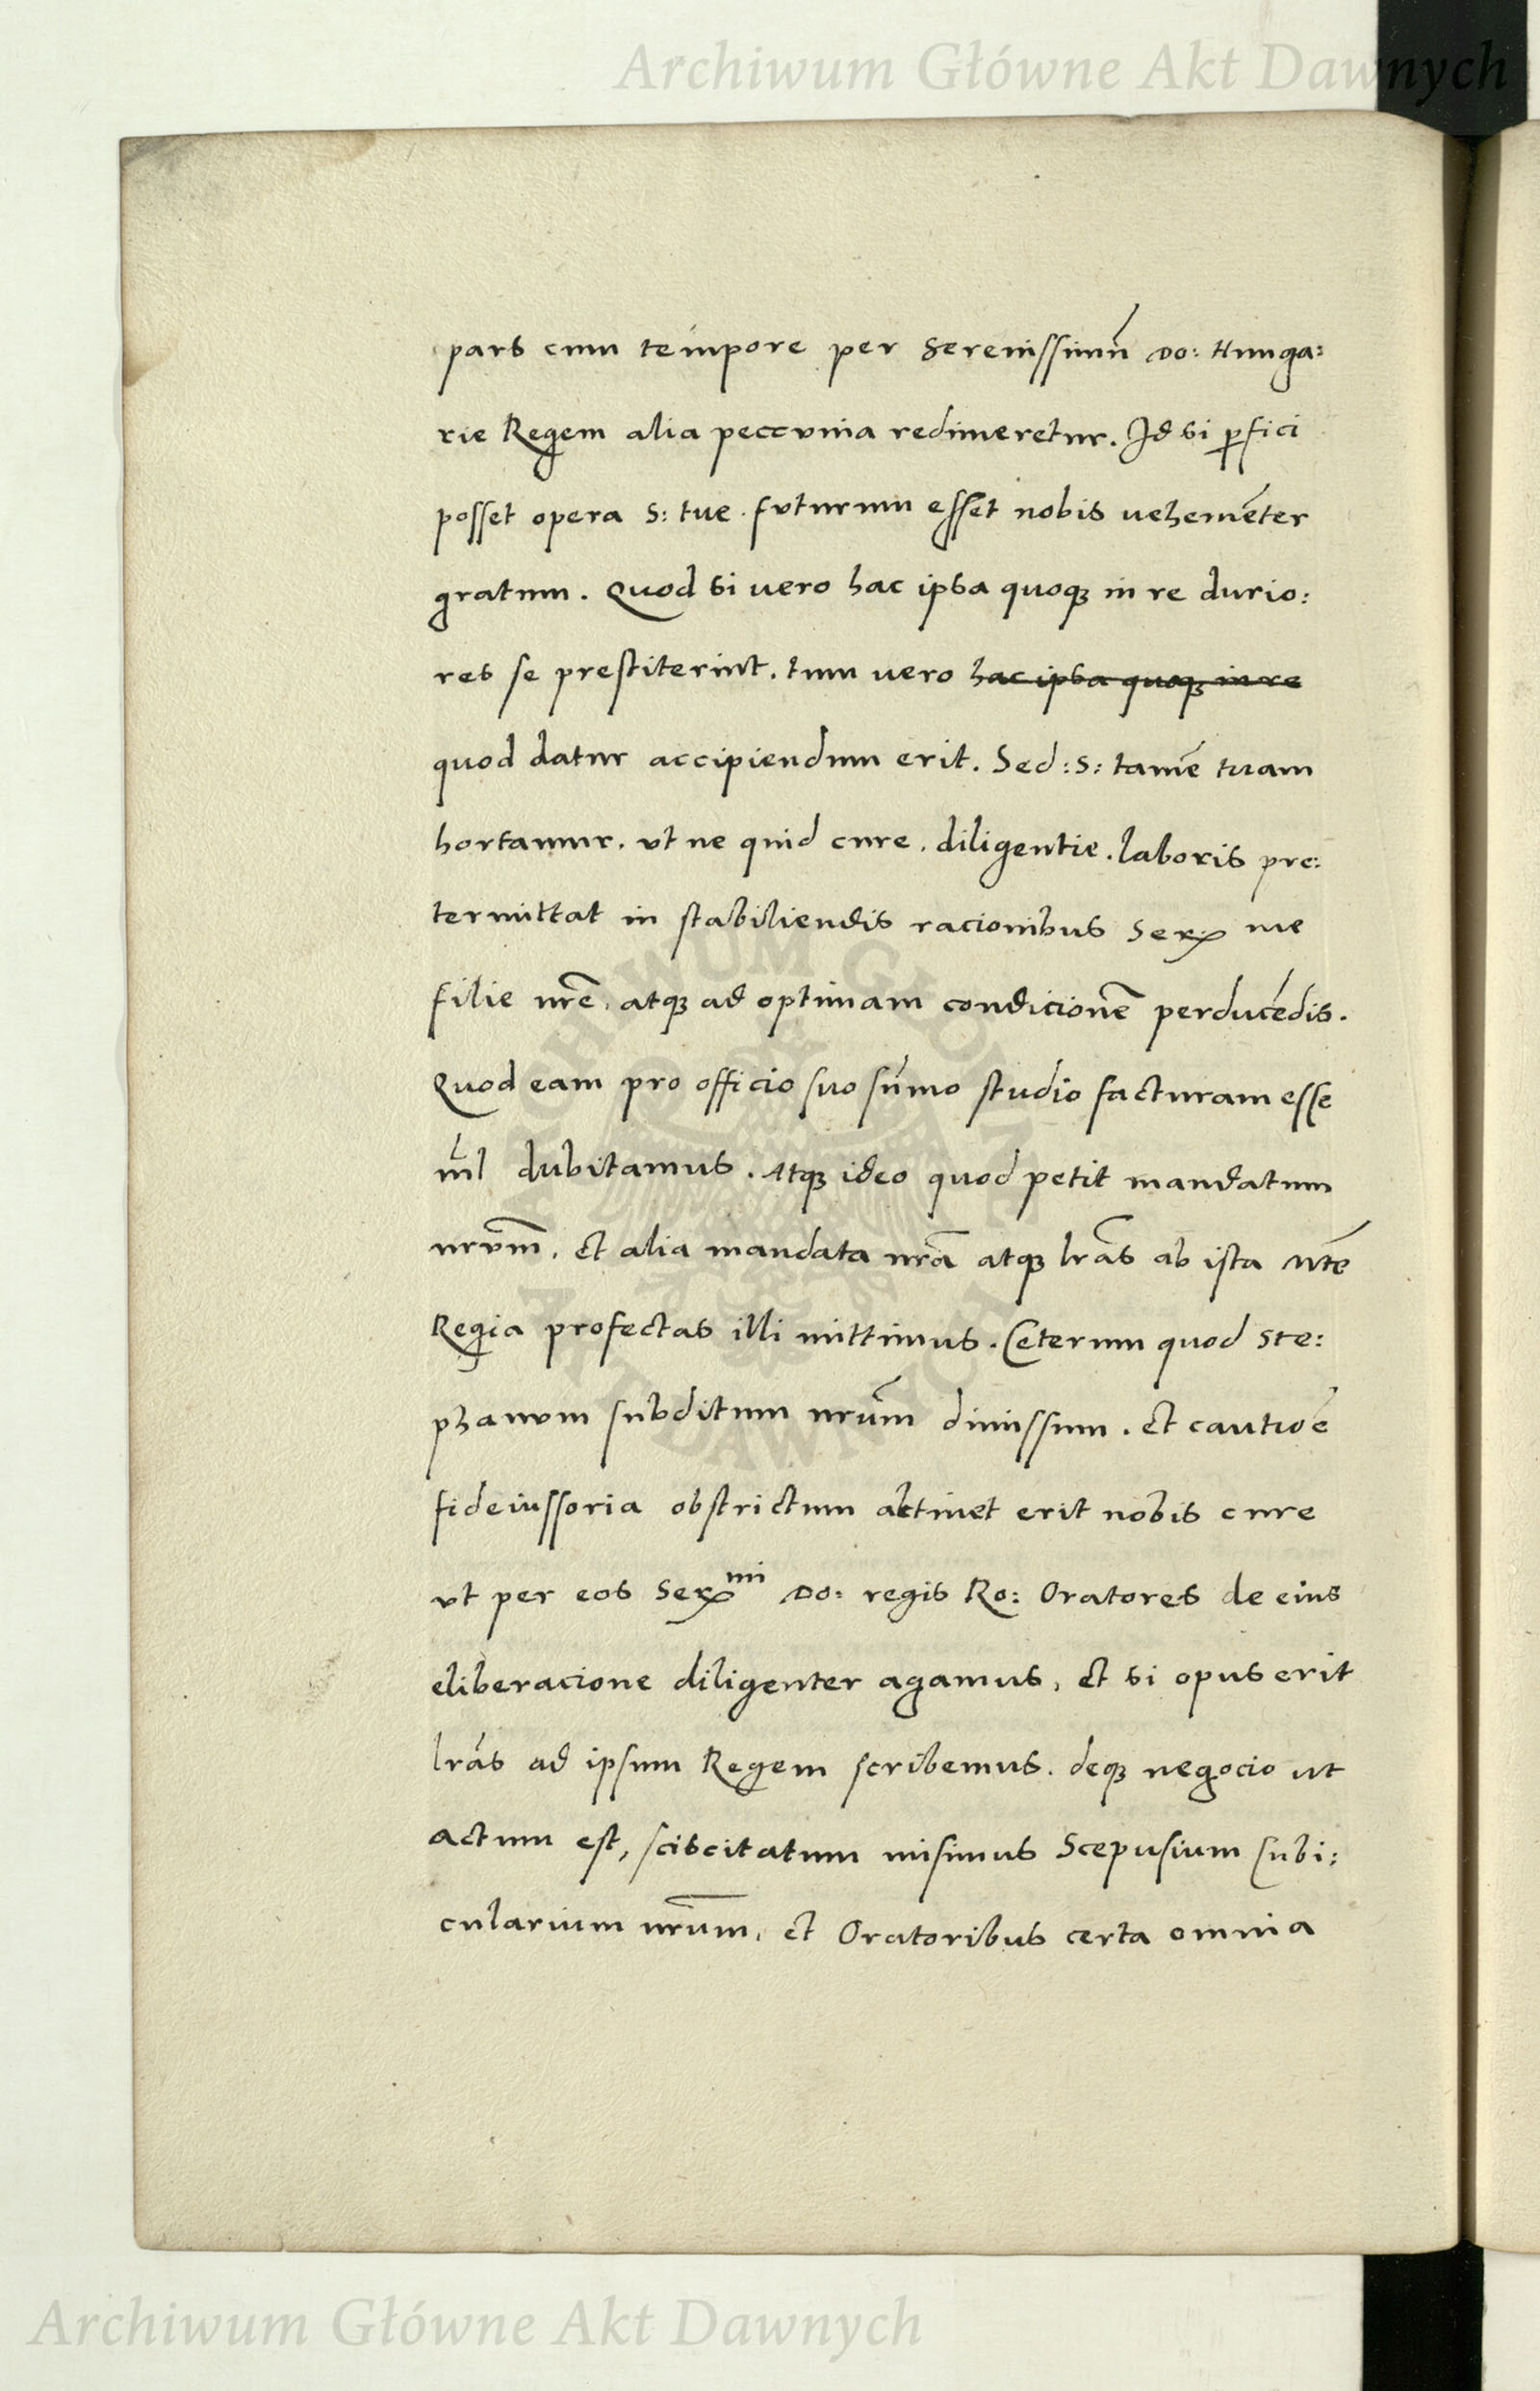 Archiwum Główne Akt Dawnych
pars cum tempore per Serenissimū Do: Hunga:
rie Regem alia peccunia redimeretur. Id si ꝑfici
posset opera S: tue. futurum esset nobis vehemēter
gratum. Quod si vero hac ipsa quoqꝫ in re durio:
res se prestiterint. tum vero hac ipsa quoqꝫ in re
quod datur accipiendum erit. Sed: S: tamē tuam
hortamur. vt ne quid cure. diligentie. laboris pre:
termittat in stabiliendis racionibus Ser me
filie nrē. atqꝫ ad optimam condicionē perducēdis.
Quod eam pro officio suo sūmo studio facturam esse
nīl dubitamus. Atqꝫ ideo quod petit mandatum
nrūm. et alia mandata nrā atqꝫ lrās ab ista Mte
Regia profectas illi mittimus. Ceterum quod Ste:
phanum subditum nrūm dimissum. et cautioē
fideiussoria obstrictum attinet erit nobis cure
vt per eos Ser mi Do: regis Ro: Oratores de eius
eliberacione diligenter agamus, et si opus erit
lrās ad ipsum Regem scribemus. deqꝫ negocio ut
actum est, sciscitatum misimus Scepusium Cubi:
cularium nrūm, et Oratoribus certa omnia
Archiwum Główne Akt Dawnych